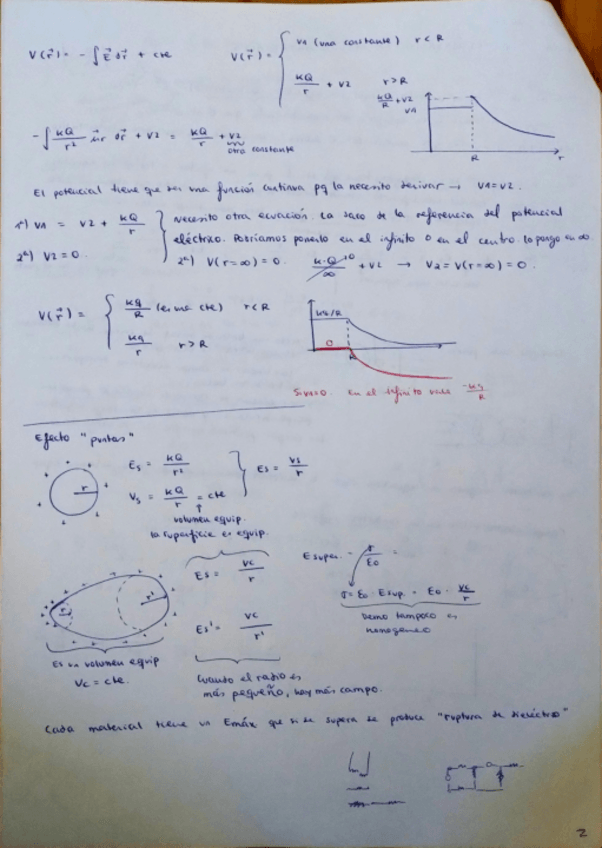 V(r⃗) = - ∫ E⃗ dr⃗ + cte
V(r⃗) = { V1 (una constante) r < R
kQ/r + V2 r > R
kQ/R + V2
V1
R
r
- ∫ kQ/r² u⃗r dr⃗ + V2 = kQ/r + V2
otra constante
El potencial tiene que ser una función continua pq la necesito derivar → V1 = V2.
1ª) V1 = V2 + kQ/r } Necesito otra ecuación. La saco de la referencia del potencial
eléctrico. Podríamos ponerlo en el infinito o en el centro. Lo pongo en ∞.
2ª) V2 = 0.
2ª) V(r=∞) = 0. k·Q/∞ →0 + V2 → V2 = V(r=∞) = 0.
V(r⃗) = { kq/R (es una cte) r < R
kq/r r > R
kq/R
0
R
Si V1=0. En el infinito vale -kq/R
Efecto "puntas"
r
Es = kQ/r²
Vs = kQ/r = cte
} Es = Vs/r
volumen equip.
la superficie es equip.
Es = Vc/r
Es' = Vc/r'
E super. = σ/ε0 =
σ = ε0 · Esup. = ε0 · Vc/r
tampoco es
homogéneo
r
r'
Es un volumen equip
Vc = cte.
Cuando el radio es
más pequeño, hay más campo.
Cada material tiene un Emáx que si se supera se produce "ruptura de dieléctrico"
2